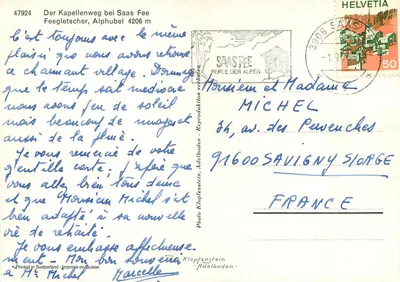 47924 Der Kapellenweg bei Saas Fee
Feegletscher, Alphubel 4206 m
C'est toujours avec le même
plaisir que nous avons retrouvé
ce charmant village. Dommage
que le temps soit médiocre
nous avons peu de soleil
mais beaucoup de nuages et
aussi de la pluie.
Je vous remercie de votre
gentille carte; j'espère que
vous allez bien tous deux
et que Monsieur Michel s'est
bien adapté à sa nouvelle
vie de retraité
Je vous embrasse affectueuse-
ment - Mon bon souvenir
à Mr Michel Marcelle
Printed in Switzerland - Imprimé en Suisse
Photo Klopfenstein, Adelboden - Reproduktion verboten
Klopfenstein
Adelboden
SAAS FEE
PERLE DER ALPEN
3906 SAAS
HELVETIA
50
Monsieur et Madame
MICHEL
34, av. des Pervenches
91600 SAVIGNY S/ORGE
FRANCE